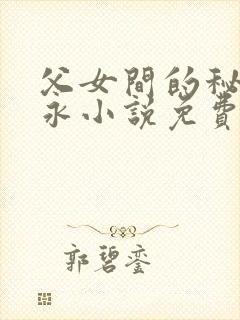 父女間的秘
永小說免費
郭碧鎏